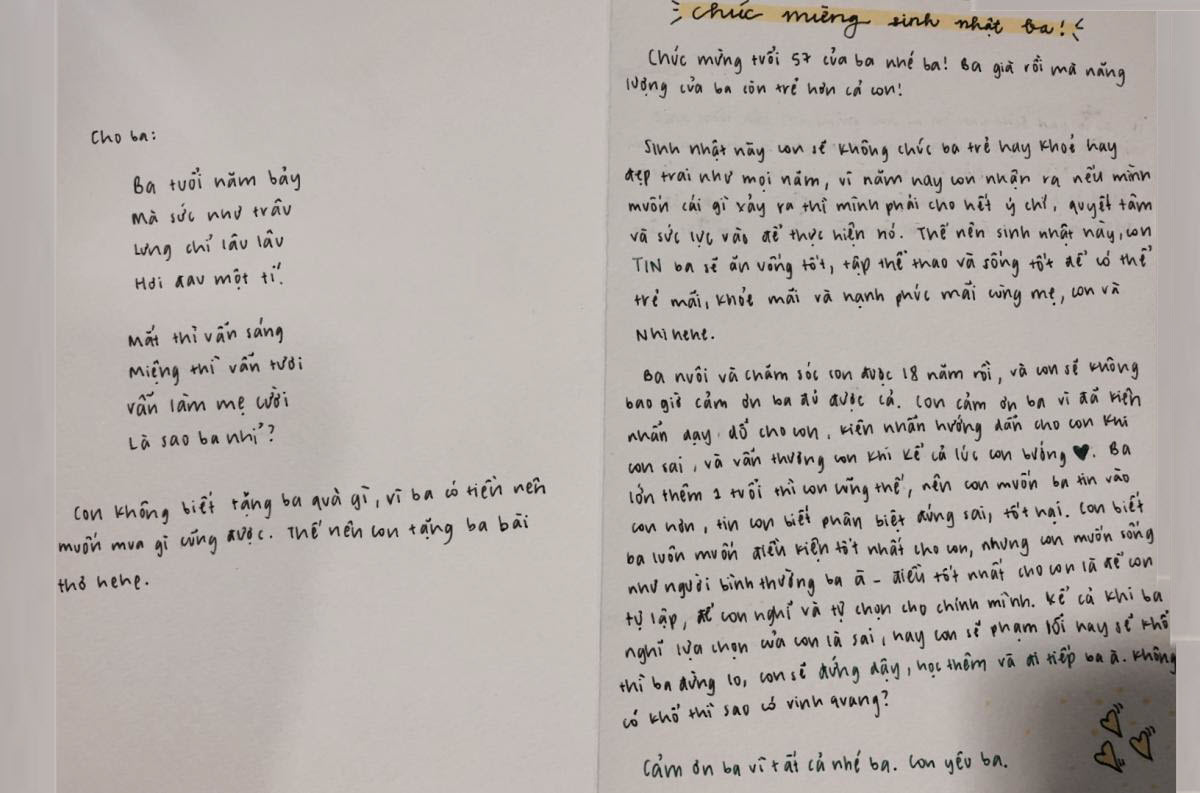 Cho ba:
Ba tuổi năm bảy
Mà sức như trâu
Lưng chỉ lâu lâu
Hơi đau một tí.
Mắt thì vẫn sáng
Miệng thì vẫn tươi
Vẫn làm mẹ cười
Là sao ba nhỉ?
Con không biết tặng ba quà gì, vì ba có tiền nên
muốn mua gì cũng được. Thế nên con tặng ba bài
thơ hehe.
Chúc mừng sinh nhật ba!
Chúc mừng tuổi 57 của ba nhé ba! Ba già rồi mà năng
lượng của ba còn trẻ hơn cả con!
Sinh nhật này con sẽ không chúc ba trẻ hay khoẻ hay
đẹp trai như mọi năm, vì năm nay con nhận ra nếu mình
muốn cái gì xảy ra thì mình phải cho hết ý chí, quyết tâm
và sức lực vào để thực hiện nó. Thế nên sinh nhật này, con
TIN ba sẽ ăn uống tốt, tập thể thao và sống tốt để có thể
trẻ mãi, khỏe mãi và hạnh phúc mãi cùng mẹ, con và
Nhi hehe.
Ba nuôi và chăm sóc con được 18 năm rồi, và con sẽ không
bao giờ cảm ơn ba đủ được cả. Con cảm ơn ba vì đã kiên
nhẫn dạy dỗ cho con, kiên nhẫn hướng dẫn cho con khi
con sai, và vẫn thương con khi kể cả lúc con bướng ♥. Ba
lớn thêm 1 tuổi thì con cũng thế, nên con muốn ba tin vào
con hơn, tin con biết phân biệt đúng sai, tốt hại. Con biết
ba luôn muốn điều kiện tốt nhất cho con, nhưng con muốn sống
như người bình thường ba à - điều tốt nhất cho con là để con
tự lập, để con nghĩ và tự chọn cho chính mình. Kể cả khi ba
nghĩ lựa chọn của con là sai, hay con sẽ phạm lỗi hay sẽ khổ
thì ba đừng lo, con sẽ đứng dậy, học thêm và đi tiếp ba à. Không
có khổ thì sao có vinh quang?
Cảm ơn ba vì tất cả nhé ba. Con yêu ba.